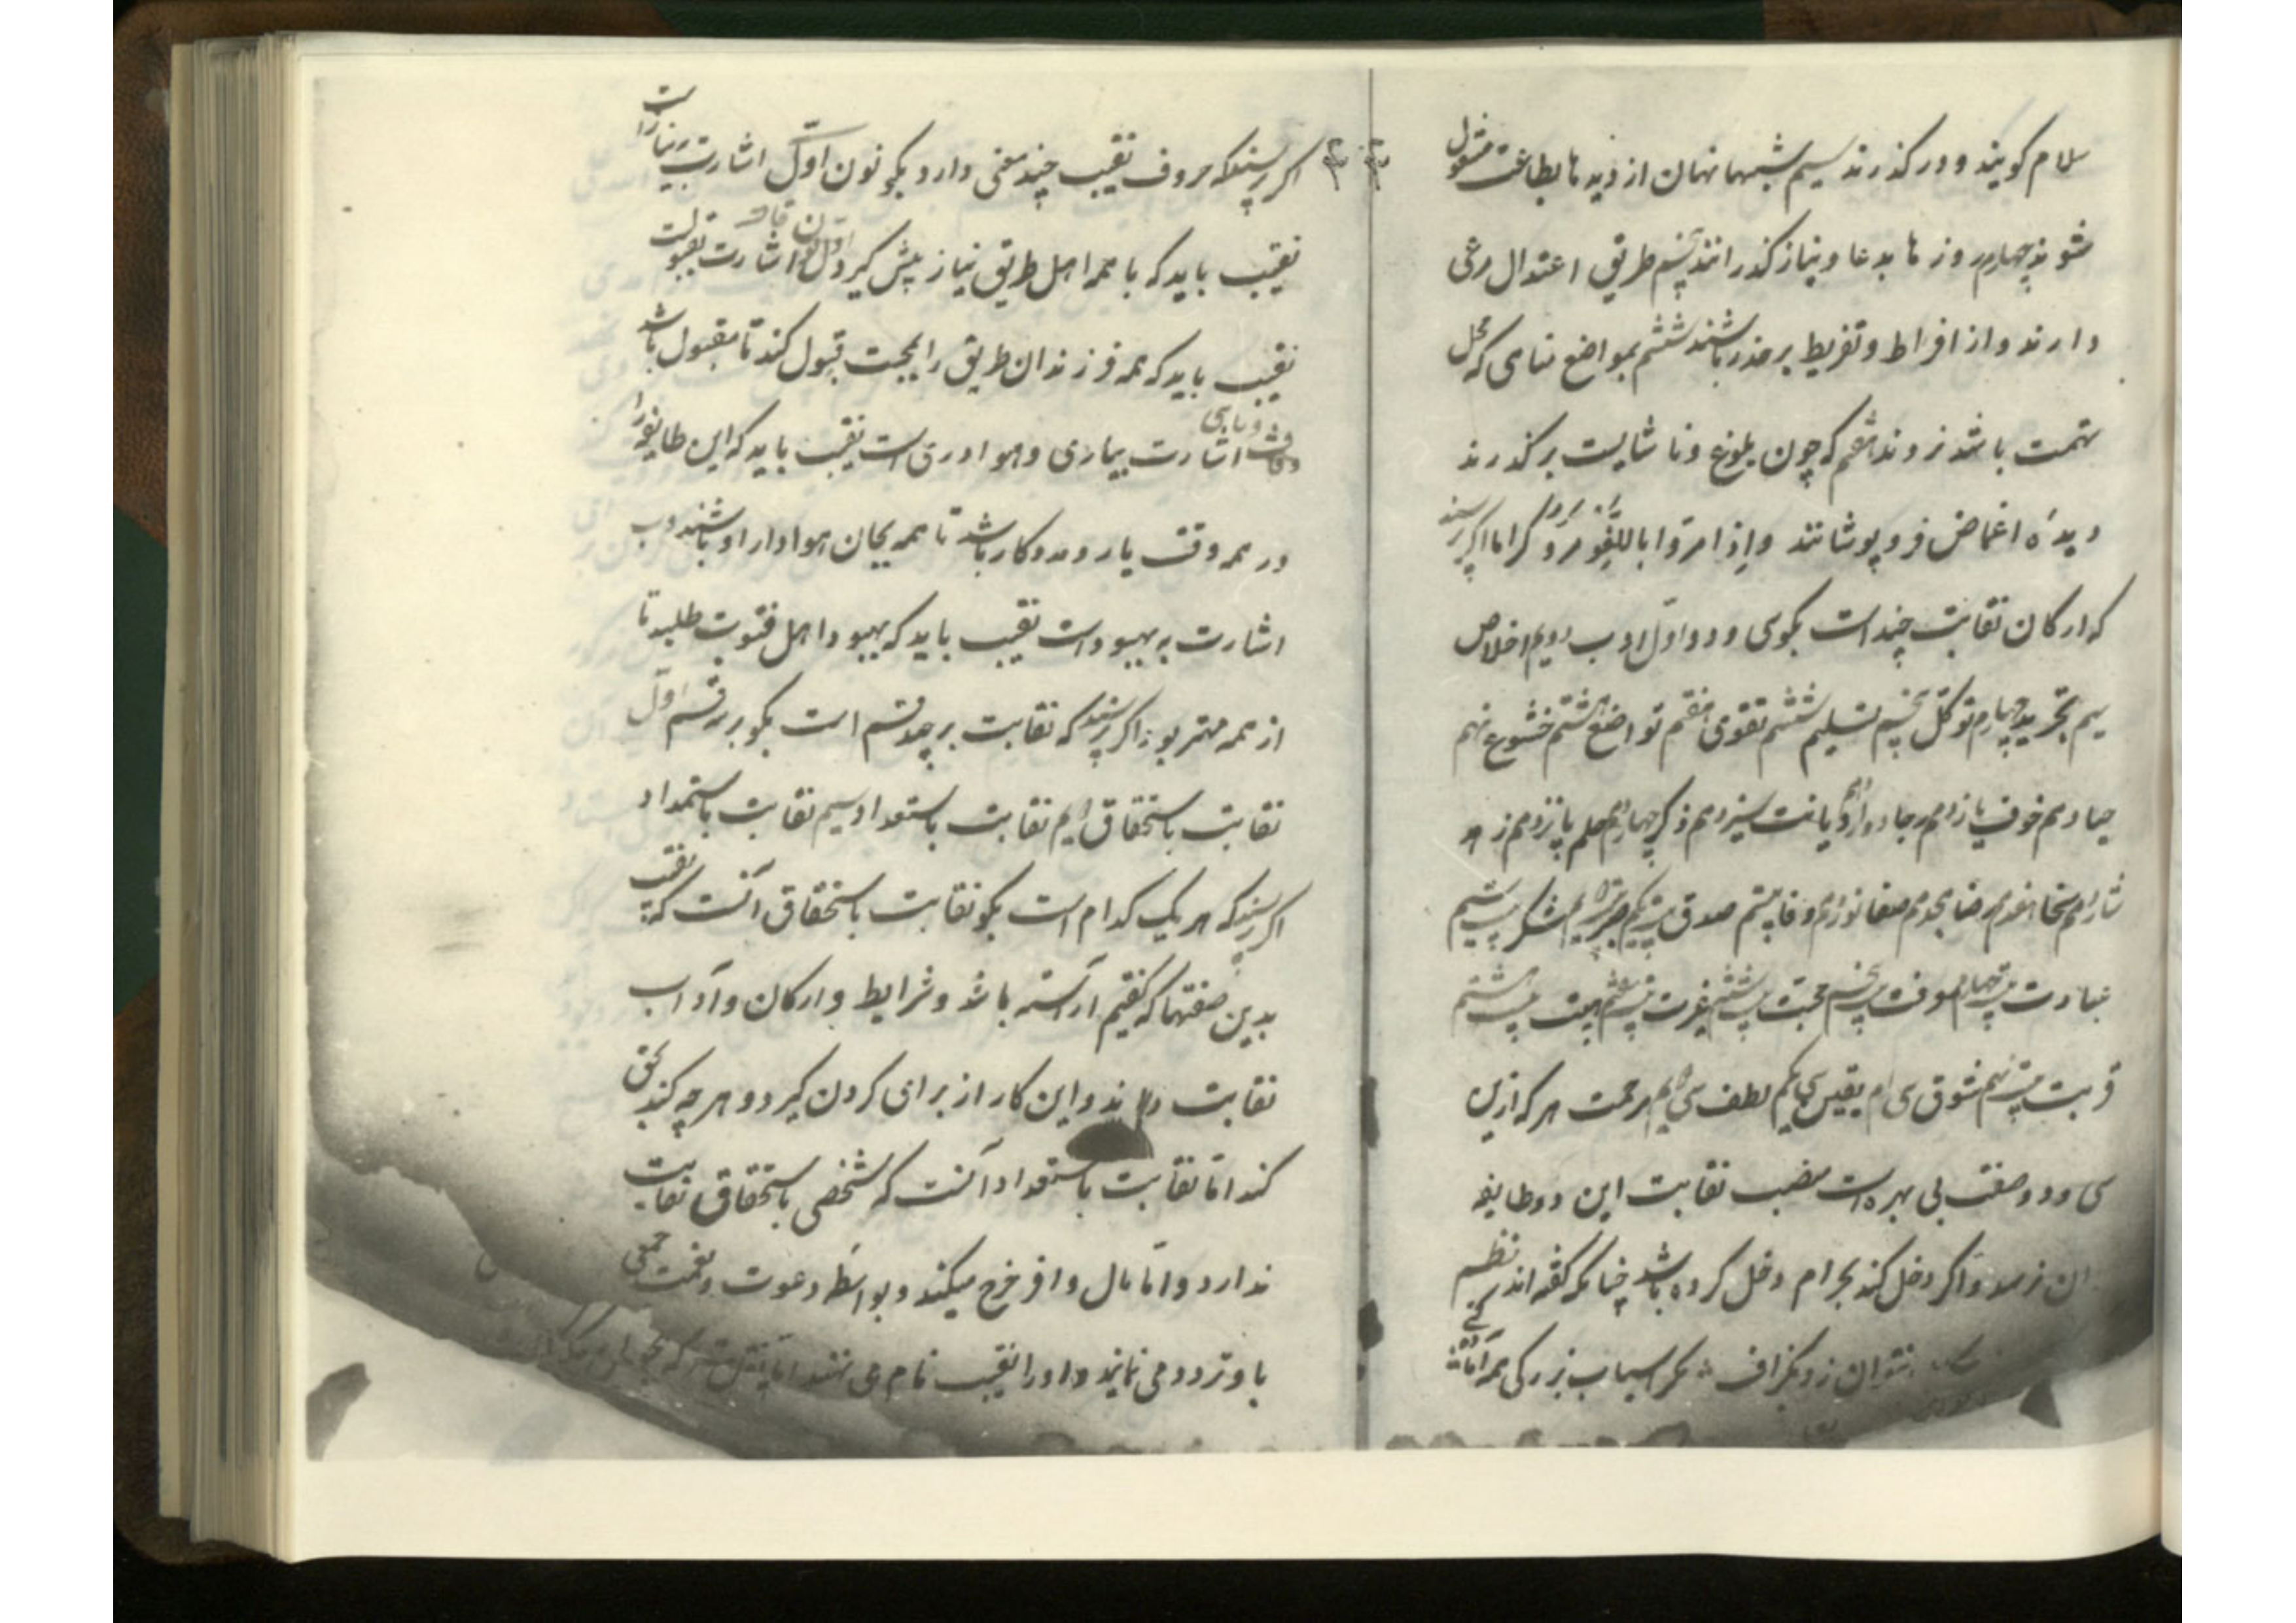 سلام کویند و در کذرند سیم شبها نهان از دیدها بطاعت مشغول
شوند چهارم روزها بدعا و نیاز کذرانند پنجم طریق اعتدال مرعی
دارند و از افراط و تفریط برحذر باشند ششم بمواضع که محل
تهمت باشد نروند هفتم که چون بلغو و ناشایست برکذرند
دیدهٔ اغماض فرو پوشانند واِذا مرّوا باللّغو مرّوا کراما اکر پرسند
که ارکان نقابت چند است بکوی سی و دو اوّل ادب دویم اخلاص
سیم تجرید چهارم توکّل پنجم تسلیم ششم تقوی هفتم تواضع هشتم خشوع نهم
حیا دهم خوف یازدهم رجا دوازدهم دیانت سیزدهم ذکر چهاردهم حلم پانزدهم زهد
سخا هفدهم رضا هجدهم صفا نوزدهم وفا بیستم صدق بیست یکم صبر شکر بیست سیم
عبادت بیست چهارم معرفت بیست پنجم محبت بیست ششم غیرت بیست هفتم هیبت بیست هشتم
قربت بیست نهم شوق سی ام یقین سی یکم لطف سی دویم مرحمت هر که ازین
سی و دو صفت بی بهره است منصب نقابت این دو طایفه
بدان نرسد و اکر دخل کند بحرام دخل کرده باشد چنانکه کفته اند نظم
نتوان زد بکزاف مکر اسباب بزرکی همه آماده کنی
اکر پرسند که حروف نقیب چند معنی دارد بکو نون اوّل اشارت بنیاز است
نقیب باید که با همه اهل طریق نیاز پیش کیرد اوّل قاف اشارت بقبولست
نقیب باید که همه فرزندان طریق را بمحبت قبول کند تا مقبول باشد
اشارت بیاری و هواداری است نقیب باید که این طایفه را
در همه وقت یار و مددکار باشد تا همه بجان هوادار او باشند و ب
اشارت به بهبود است نقیب باید که بهبود اهل فتوت طلبد تا
از همه مهتر بود اکر پرسند که نقابت بر چند قسم است بکو بر سه قسم اوّل
نقابت باستحقاق دویم نقابت باستعداد سیم نقابت باستمداد
اکر پرسند که هر یک کدام است بکو نقابت باستحقاق آنست که نقیب
بدین صفتها که کفتیم آراسته باشد و شرایط و ارکان و آداب
نقابت داند و این کار از برای کردن کیرد و هرچه کند بحق
کند امّا نقابت باستعداد آنست که شخصی باستحقاق نقابت
ندارد و امّا مال وافر خرج میکند و بواسطه دعوت و نعمت جمعی
با و تردد می نمایند و او را نقیب نام می نهند امّا